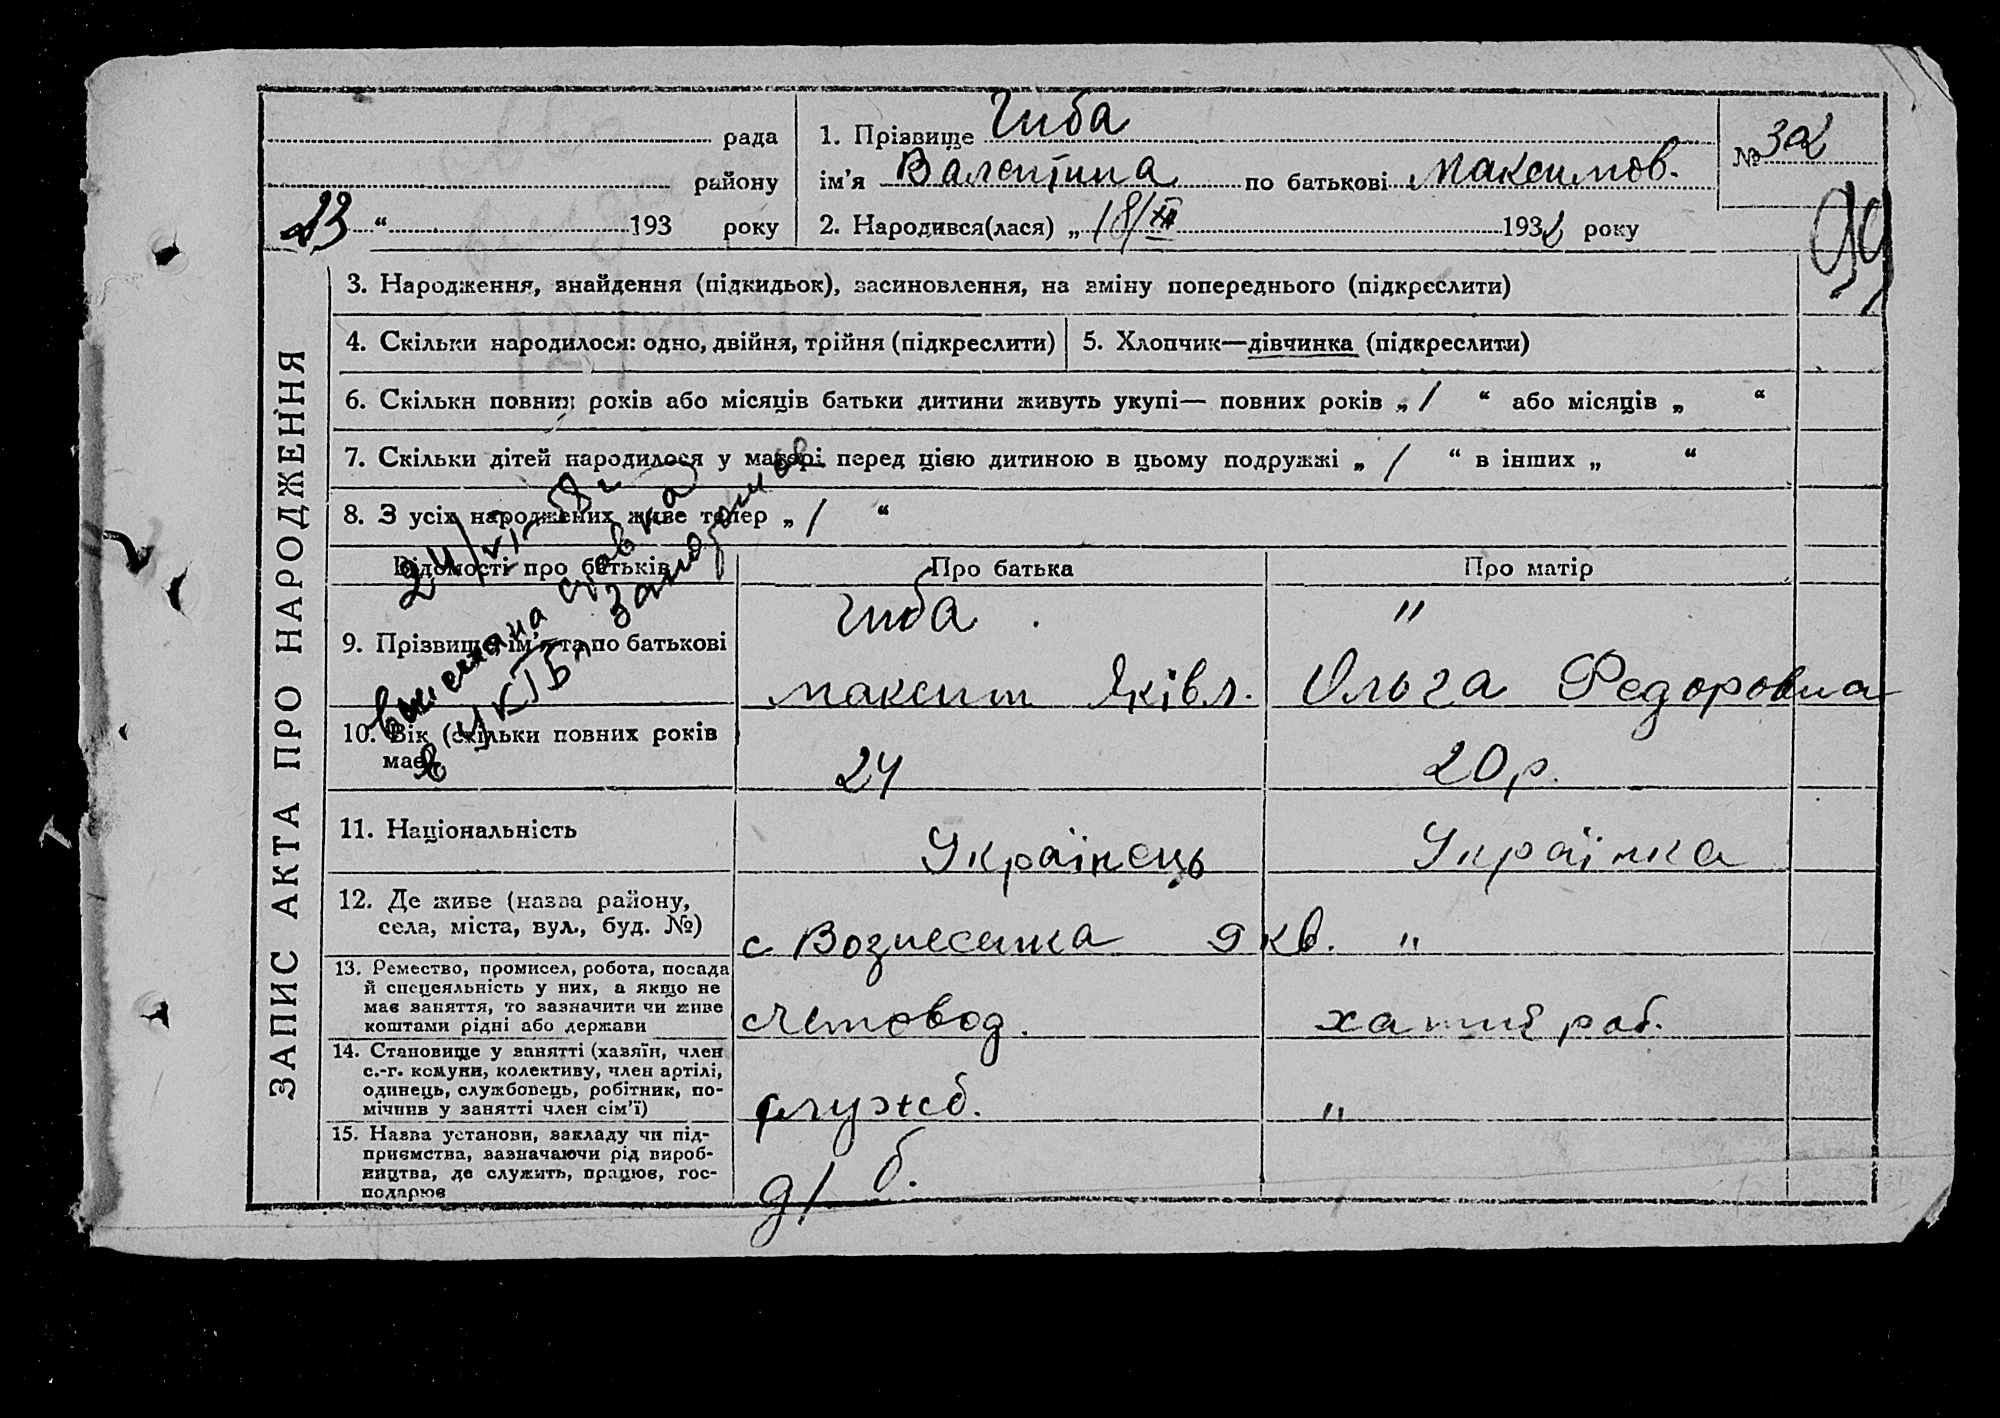 рада
району
23 “ 193 року
1. Прізвище Гиба
ім’я Валентина по батькові Максимов.
2. Народився(лася) „ 18/XII 1932 року
№ 32
99
ЗАПИС АКТА ПРО НАРОДЖЕННЯ
3. Народження, знайдення (підкидьок), засиновлення, на зміну попереднього (підкреслити)
4. Скільки народилося: одно, двійня, трійня (підкреслити)
5. Хлопчик—дівчинка (підкреслити)
6. Скільки повних років або місяців батьки дитини живуть укупі— повних років „ 1 “ або місяців „ “
7. Скільки дітей народилося у матері перед цією дитиною в цьому подружжі „ 1 “ в інших „ “
8. З усіх народжених живе тепер „ 1 “
24/VI-58 г
справка
в УКГБ Запорожье
Відомості про батьків
Про батька
Про матір
9. Прізвище ім’я та по батькові
Гиба
"
Максим Яківл.
Ольга Федоровна
10. Вік (скільки повних років має)
24
20 р.
11. Національність
Українець
Українка
12. Де живе (назва району, села, міста, вул., буд. №)
с Вознесенка 9 кв.
"
13. Ремество, промисел, робота, посада
й спецеяльність у них, а якщо не
має заняття, то зазначити чи живе
коштами рідні або держави
счетовод.
хатня роб.
14. Становище у занятті (хазяїн, член
с.-г. комуни, колективу, член артілі,
одинець, службовець, робітник, по-
мічнив у занятті член сім’ї)
служб.
"
15. Назва установи, закладу чи під-
приємства, зазначаючи рід вироб-
ництва, де служить, працює, гос-
подарює